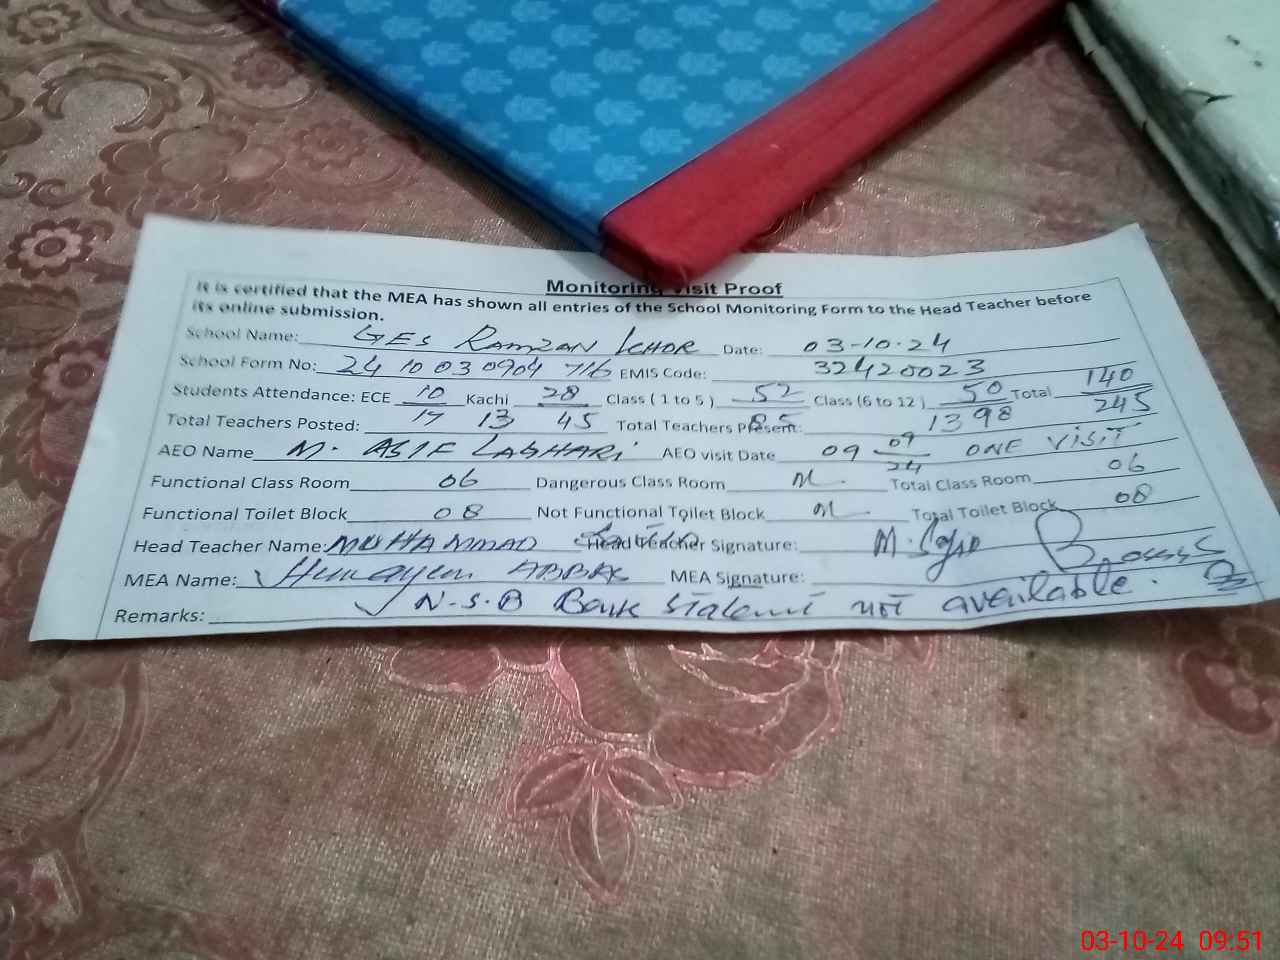 Monitoring Visit Proof
It is certified that the MEA has shown all entries of the School Monitoring Form to the Head Teacher before
its online submission.
School Name: GES RAMZAN KHOR Date: 03-10-24
School Form No: 24 10 03 0904 716 EMIS Code: 32420023
Students Attendance: ECE 10 Kachi 28 Class ( 1 to 5 ) 52 Class (6 to 12 ) 50 Total 140
245
Total Teachers Posted: 17 13 45 Total Teachers Present: 85 1398
AEO Name M. ASIF LAGHARI AEO visit Date 09 09 24 ONE VISIT
Functional Class Room 06 Dangerous Class Room Total Class Room 06
Functional Toilet Block 08 Not Functional Toilet Block Total Toilet Block 08
Head Teacher Name: MUHAMMAD Head Teacher Signature:
MEA Name: Humayun ABBAS MEA Signature:
Remarks: N-S-B Bank Statement not available.
03-10-24 09:51